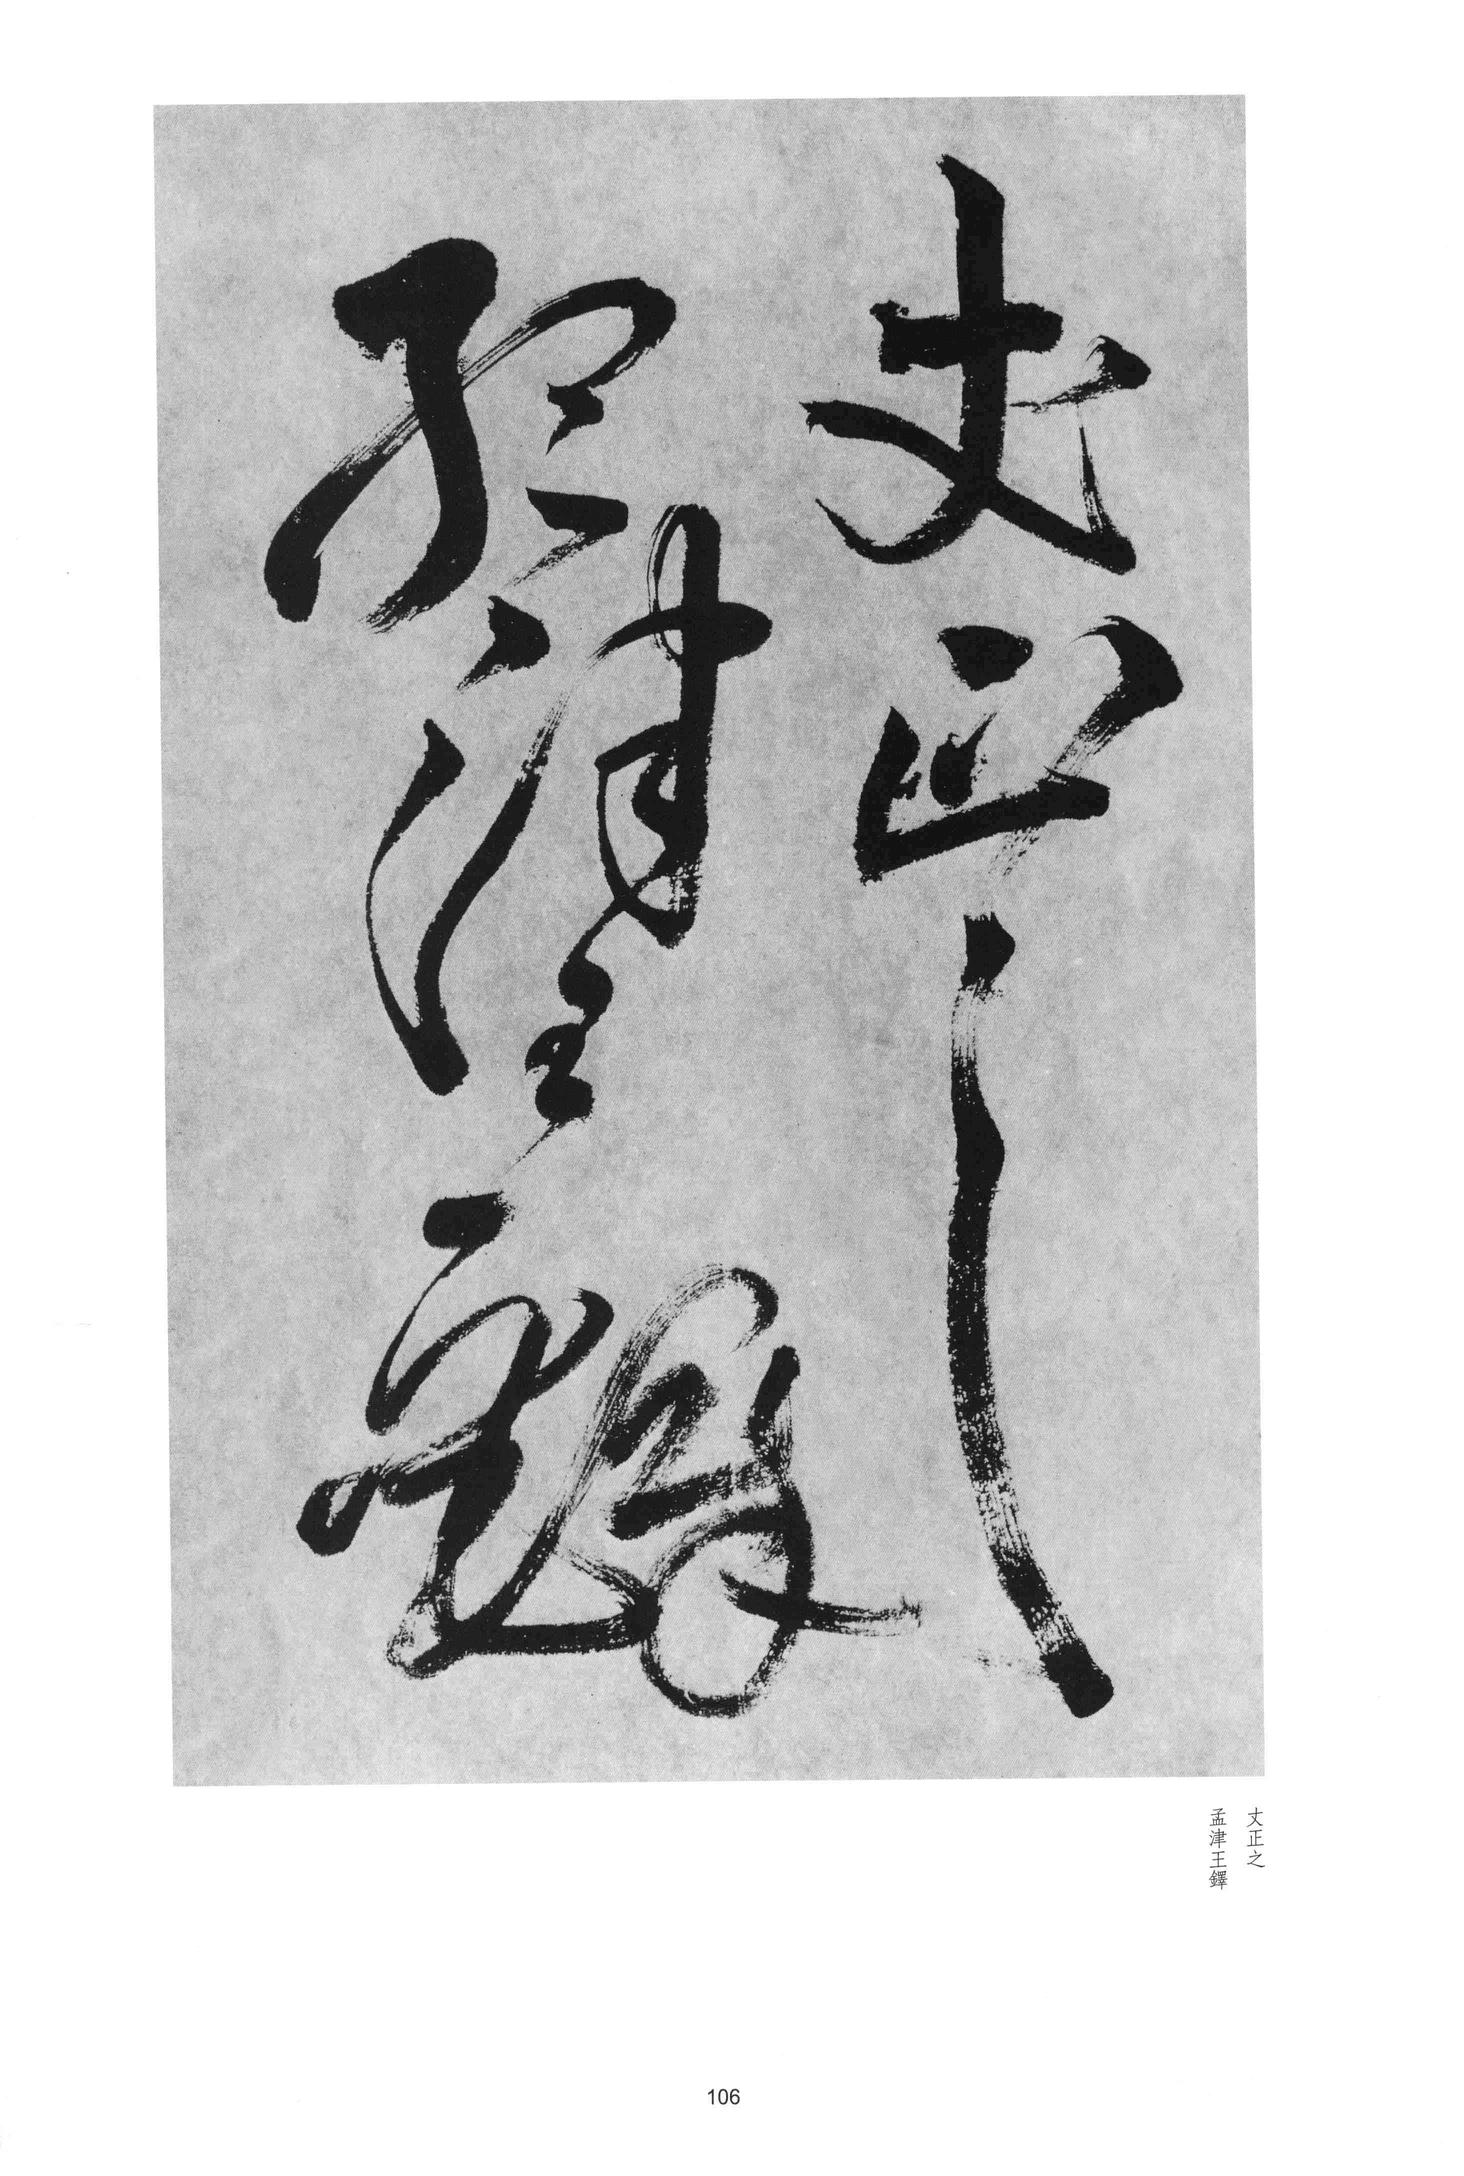 丈正之
孟津王鐸
丈正之
孟津王鐸
106